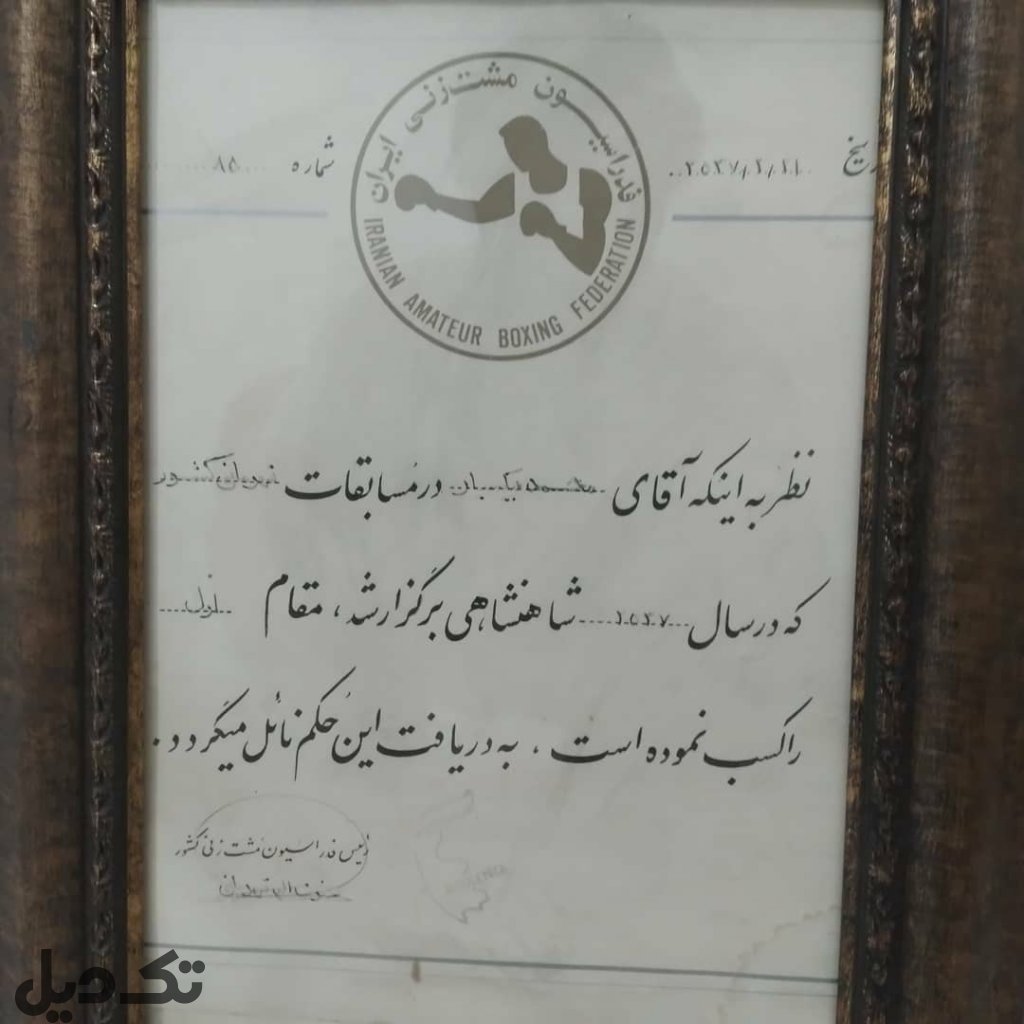 فدراسیون مشت‌زنی ایران
IRANIAN AMATEUR BOXING FEDERATION
تاریخ ۲۵۳۷/۲/۲۱
شماره ۸۵
نظر به اینکه آقای محمود یکبار در مسابقات قهرمانی کشور
که در سال ۲۵۳۷ شاهنشاهی برگزار شد، مقام اول
را کسب نموده است، به دریافت این حکم نائل میگردد.
رئیس فدراسیون مشت زنی کشور
تک دیل